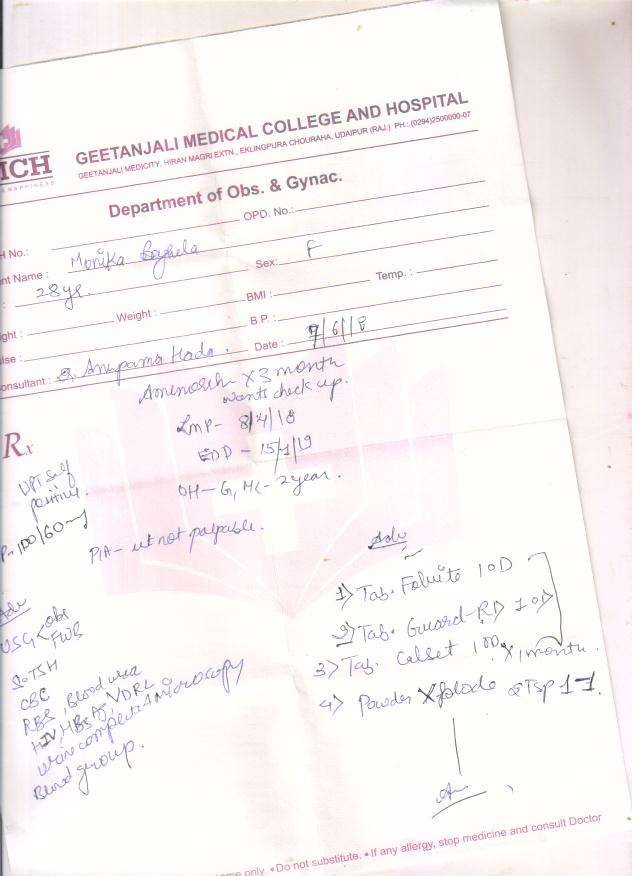 MCH
GEETANJALI MEDICAL COLLEGE AND HOSPITAL
GEETANJALI MEDICITY, HIRAN MAGRI EXTN., EKLINGPURA CHOURAHA, UDAIPUR (RAJ.) PH.: (0294)2500000-07
Department of Obs. & Gynac.
H No.: OPD. No.:
nt Name : Monika Sex: F
: 28 yr.
ght : Weight : BMI : Temp. :
lse : B.P. :
onsultant : Dr. Anupama Hada. Date : 7/6/18
X 3 month
wants check up.
LMP - 8/4/18
EDD - 15/1/19
OH - G, ML - 2 year.
Rx
UPT self
positive.
100/60
P/A - ut not palpable.
Adv
1) Tab. Folvite 1 OD
2) Tab. Guard-RD 1 OD
3) Tab. Calset 1 OD X 1 month.
4) Powder 2 Tsp
Adv
USG < obs
FWB
S. TSH
CBC
RBS, Blood urea
HIV, HBsAg, VDRL
urine complete & microscopy
Blood group.
me only. • Do not substitute. • If any allergy, stop medicine and consult Doctor